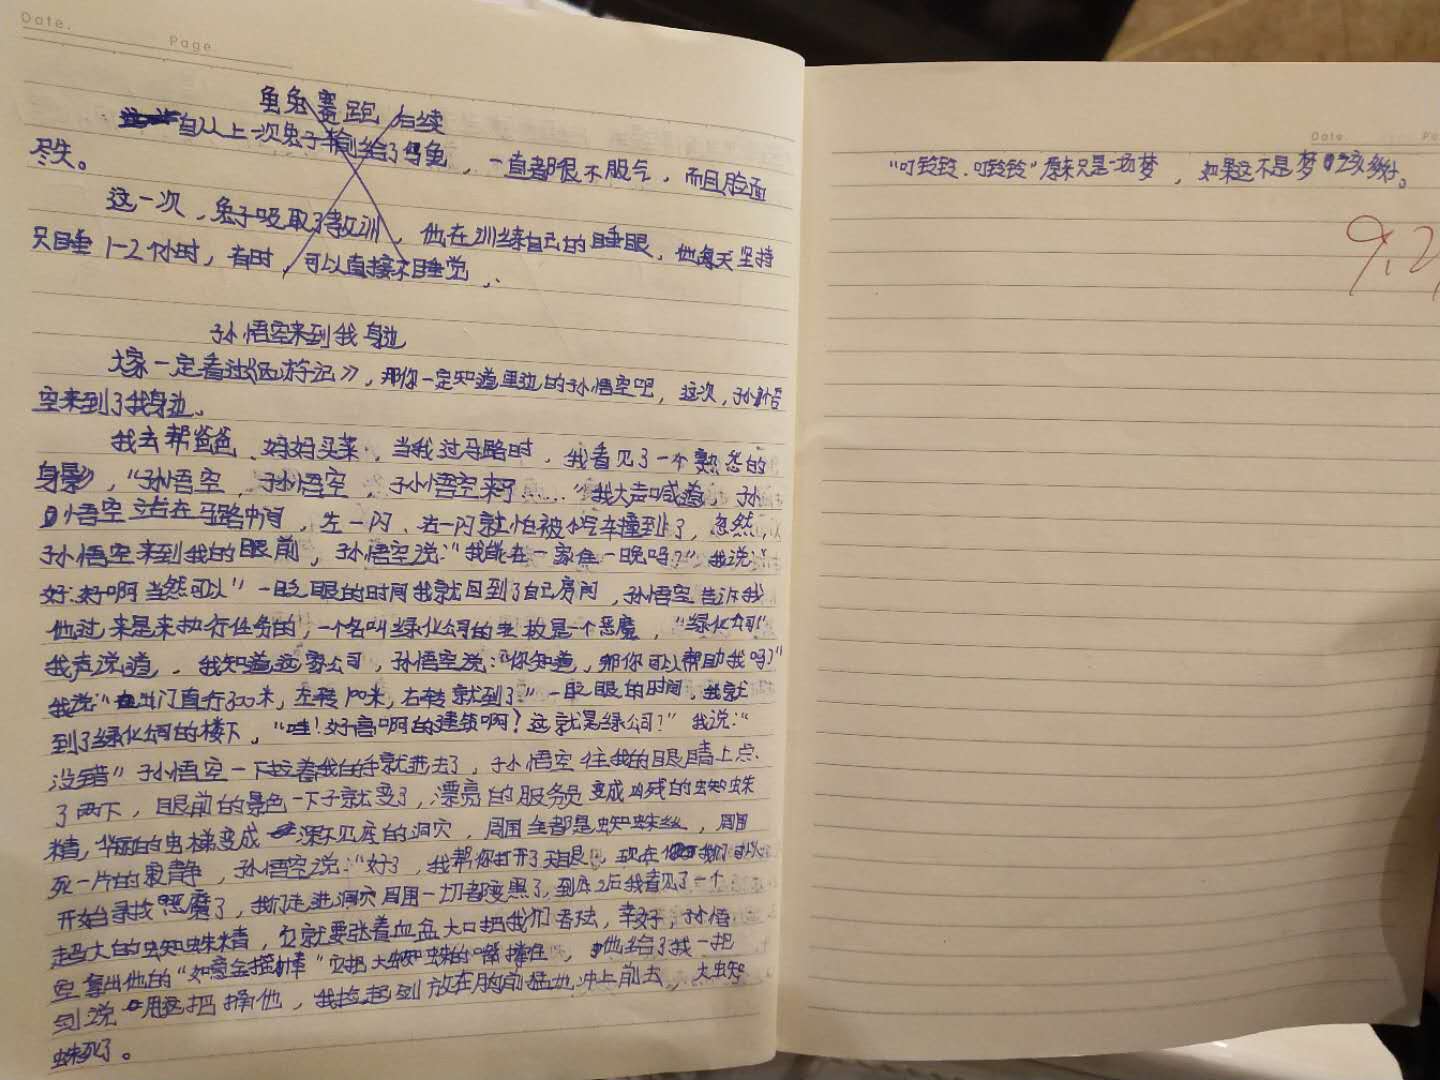 Date.
Page
龟兔赛跑后续
自从上一次兔子输给了乌龟，一直都很不服气，而且脸面
尽失。
这一次，兔子吸取了教训，他在训练自己的睡眠，他每天坚持
只睡1-2个小时，有时，可以直接不睡觉，.
孙悟空来到我身边
大家一定看过《西游记》，那你一定知道里边的孙悟空吧，这次，孙悟
空来到了我身边。
我去帮爸爸、妈妈买菜，当我过马路时，我看见了一个熟悉的
身影，“孙悟空，孙悟空，孙悟空来了……”我大声喊道，孙
悟空站在马路中间，左一闪、右一闪就怕被汽车撞到了，忽然，
孙悟空来到我的眼前，孙悟空说：“我能在一家住一晚吗？”我说：“
好.好啊当然可以”一眨眼的时间我就回到了自己房间，孙悟空告诉我
他过来是来执行任务的，一个名叫绿化公司的老板是一个恶魔，“绿化公司！”
我声说道，我知道这家公司，孙悟空说：“你知道，那你可以帮助我吗？”
我说“出门直行300米，左转100米，右转就到了”一眨眼的时间，我就
到了绿化公司的楼下，“哇！好高啊的建筑啊？这就是绿公司？”我说：“
没错”孙悟空一下拉着我的手就进去了，孙悟空往我的眼睛上点
了两下，眼前的景色一下子就变了，漂亮的服务员变成凶残的蜘蛛
精，华丽的电梯变成深不见底的洞穴，周围全都是蜘蛛丝，周围
死一片的寂静，孙悟空说：“好了，我帮你打开了天眼，现在我们可以
开始寻找恶魔了，我们走进洞穴周围一切都变黑了，到底2后我看见了一个
超大的蜘蛛精，它就要张着血盆大口把我们吞法，幸好，孙悟
空拿出他的“如意金箍棒”它把大蜘蛛的嘴撑住，他给了我一把
剑说用这把捅他，我捡起剑放在胸前猛地冲上前去，大蜘
蛛死了。
Date.
“叮铃铃.叮铃铃”原来只是一场梦，如果这不是梦该多好。
9.2